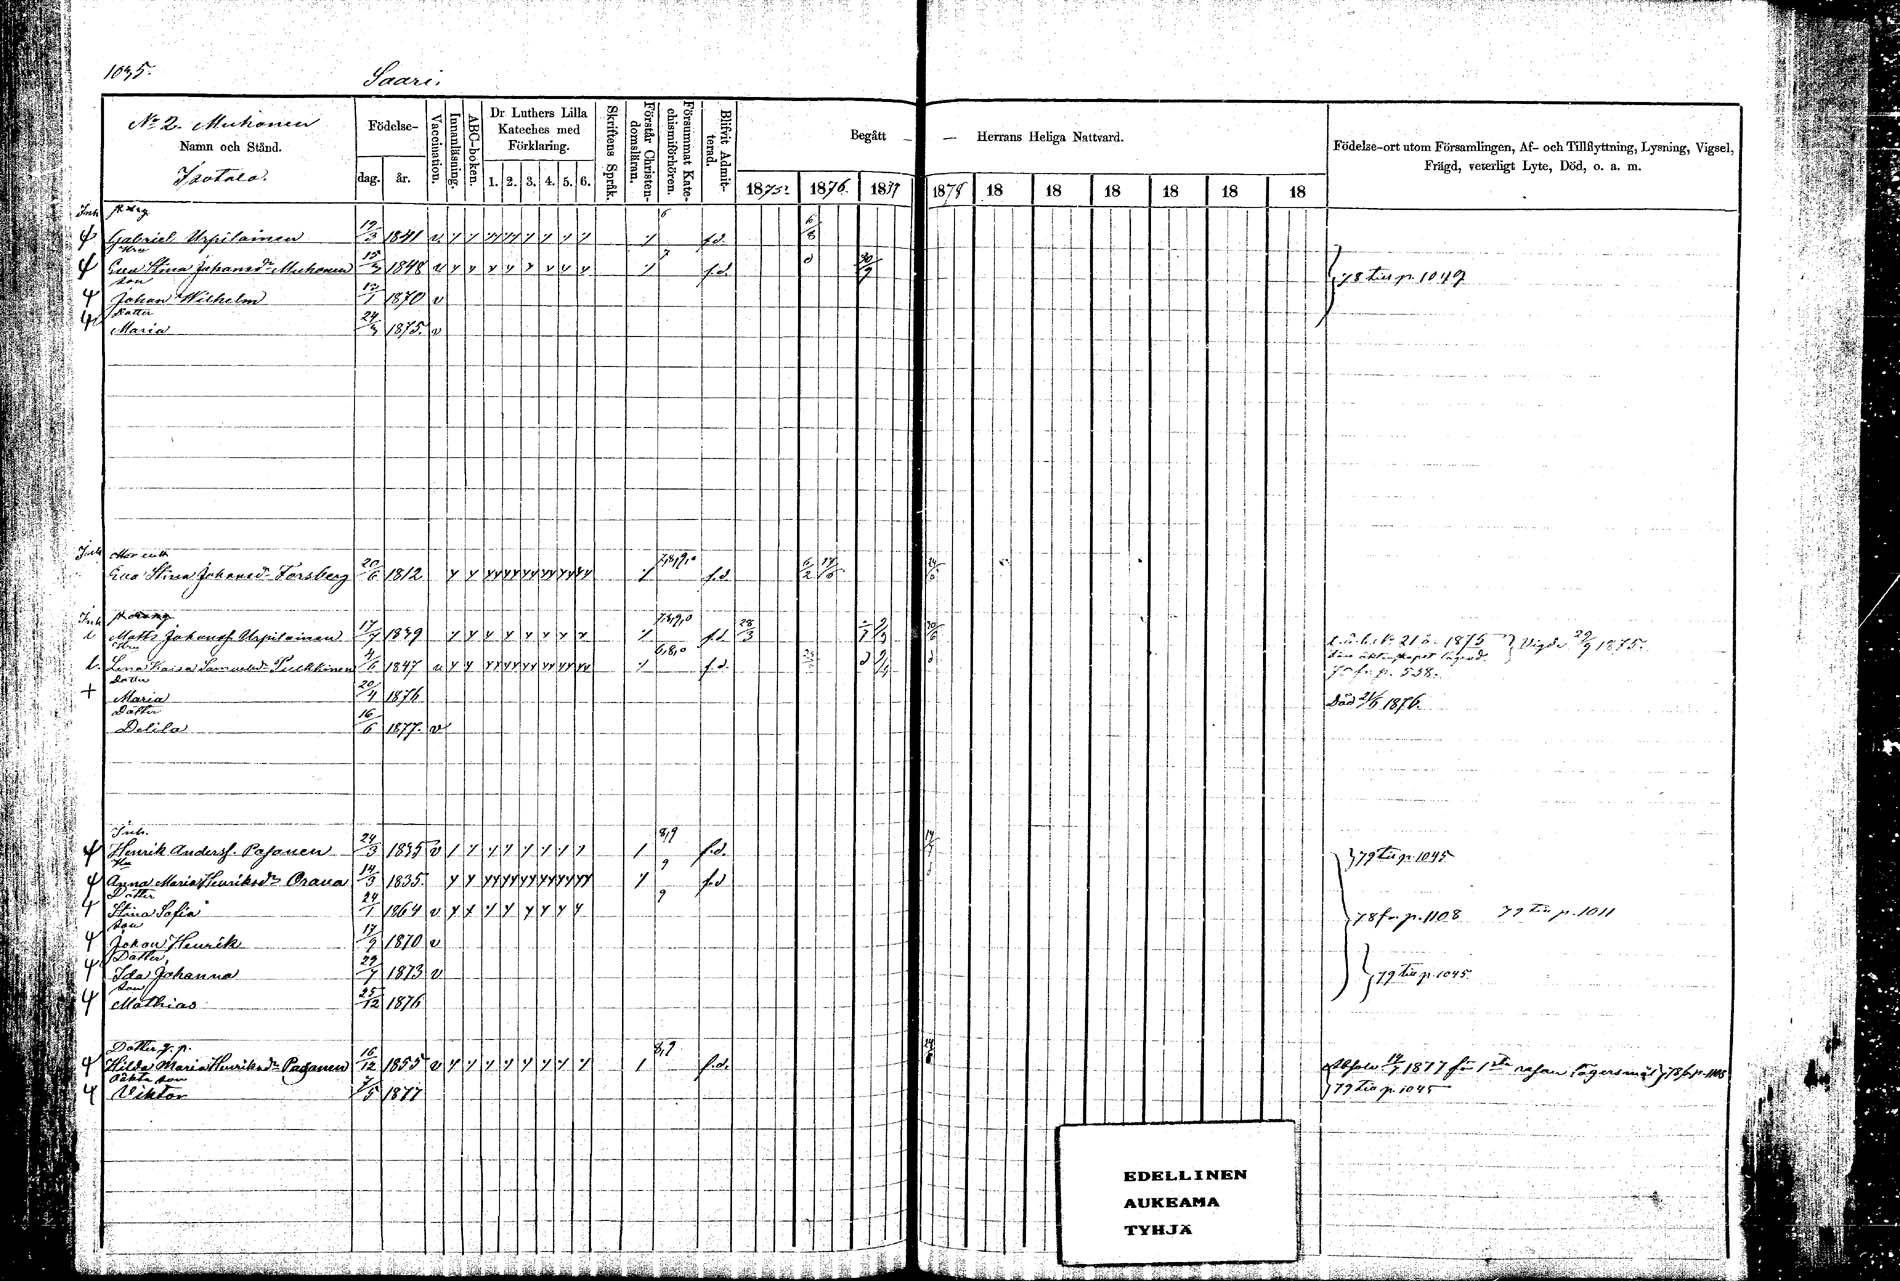 1035.
Saari.
No 2. Muhonen
Namn och Stånd.
Födelse-
dag.
år.
Vaccination.
Innanläsning.
ABC-boken.
Dr Luthers Lilla
Kateches med
Förklaring.
1. 2. 3. 4. 5. 6.
Skriftens Språk.
Förstår Christen-
domsläran.
Försummat Kate-
chismiförhören.
Blifvit Admit-
terad.
Begått — — Herrans Heliga Nattvard.
1875. 1876. 1877 1878 18 18 18 18 18 18
Födelse-ort utom Församlingen, Af- och Tillflyttning, Lysning, Vigsel,
Frägd, veterligt Lyte, Död, o. a. m.
Inh
Gabriel Urpilainen 12/3 1841 v. f.d. 6/8
Hru
Eva Stina Johansdr Muhonen 15/3 1848 v f.d. 30/9 78 till p. 1049
Son
Johan Wilhelm 12/1 1870 v
Dotter
Maria 24/3 1875. v
Inh
Eva Stina Johansdr Forsberg 20/6 1812 7,8,9,0 f.d.
Inh
Matts Johansf. Urpilainen 17/7 1849 7,8,9,0 f.d. 28/3 Vigde 29/9 1875.
Hru
Lena Kaisa Samuelsdr Pulkkinen 4/6 1847 v 6,8,0 f.d. p. 538.
Dotter
Maria 20/4 1876 Död 21/5 1876.
Dotter
Delila 16/6 1877. v
Inh.
Henrik Andersf. Pasanen 24/3 1835 v 8,9 f.d. 79 till p. 1045
Hu
Anna Maria Henriksdr Orava 14/3 1835. 9 f.d
Dotter
Stina Sofia 24/1 1864 v 9 78 fr. p. 1108 79 till p. 1011
Son
Johan Henrik 17/9 1870 v
Dotter,
Ida Johanna 29/7 1873 v 79 till p. 1045
Son
Mathias 25/12 1876
Dotter
Hilda Maria Henriksdr Pasanen 16/12 1855 v 8,9 f.d. 1877 för 1sta resan lägersmål 78 fr. p. 1108
Oäkta son
Viktor 7/5 1877 79 till p. 1045
EDELLINEN
AUKEAMA
TYHJÄ